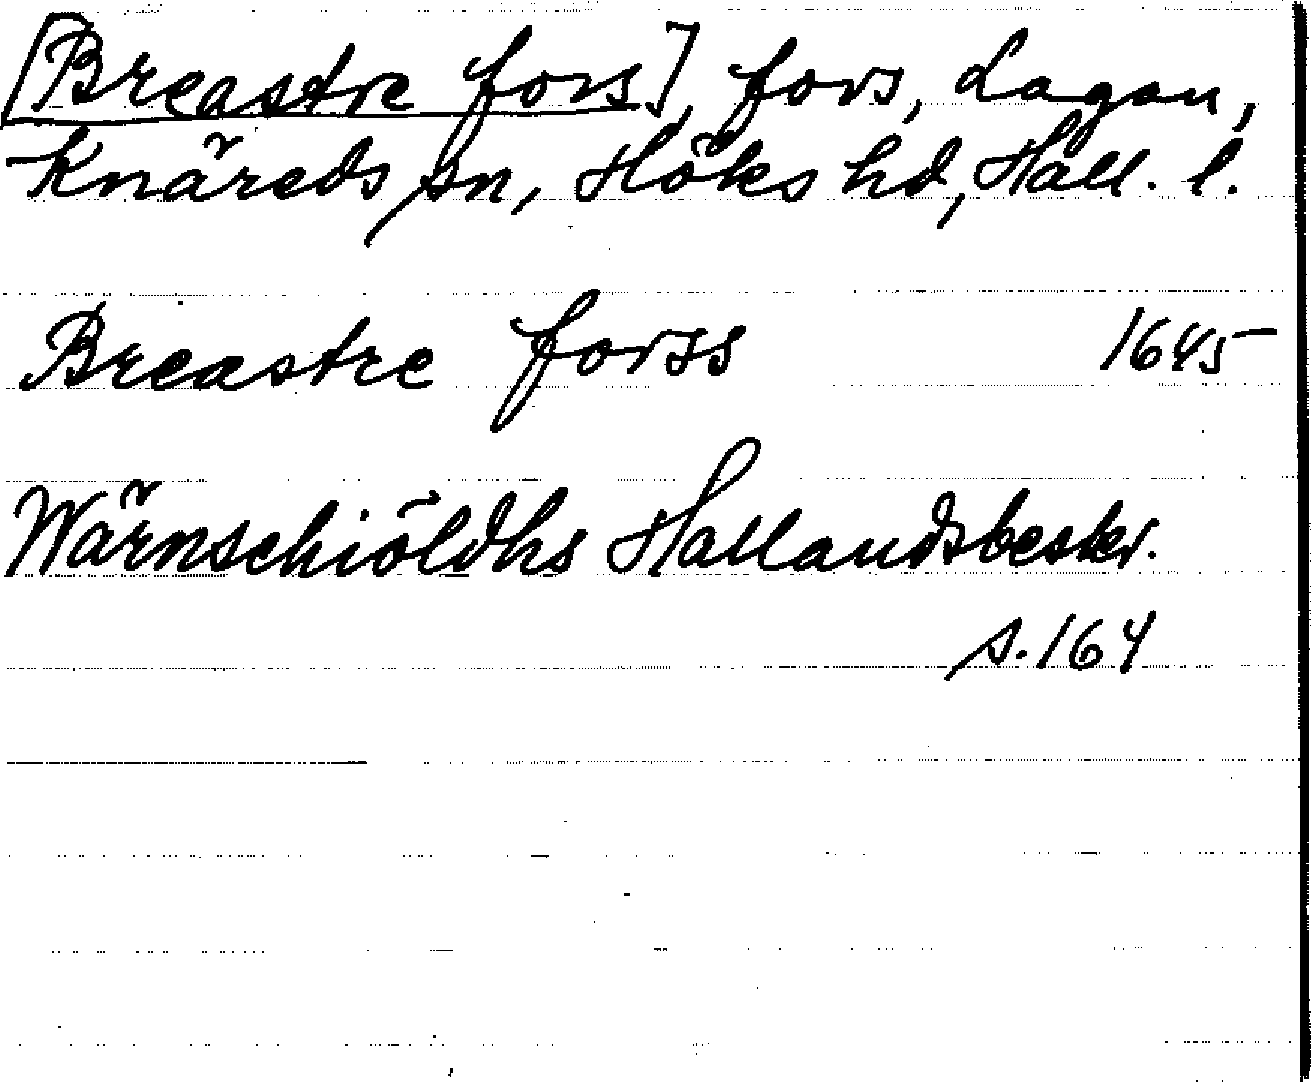 [Breastre fors], fors, Lagan,
Knäreds sn, Höks hd, Hall. l.
Breastre forss 1645
Wärnschiöldhs Hallandsbeskr.
s. 164